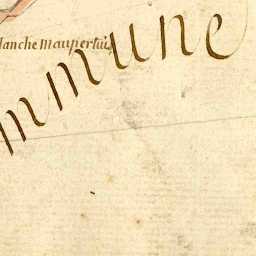 lanche Maupertuis
mmune